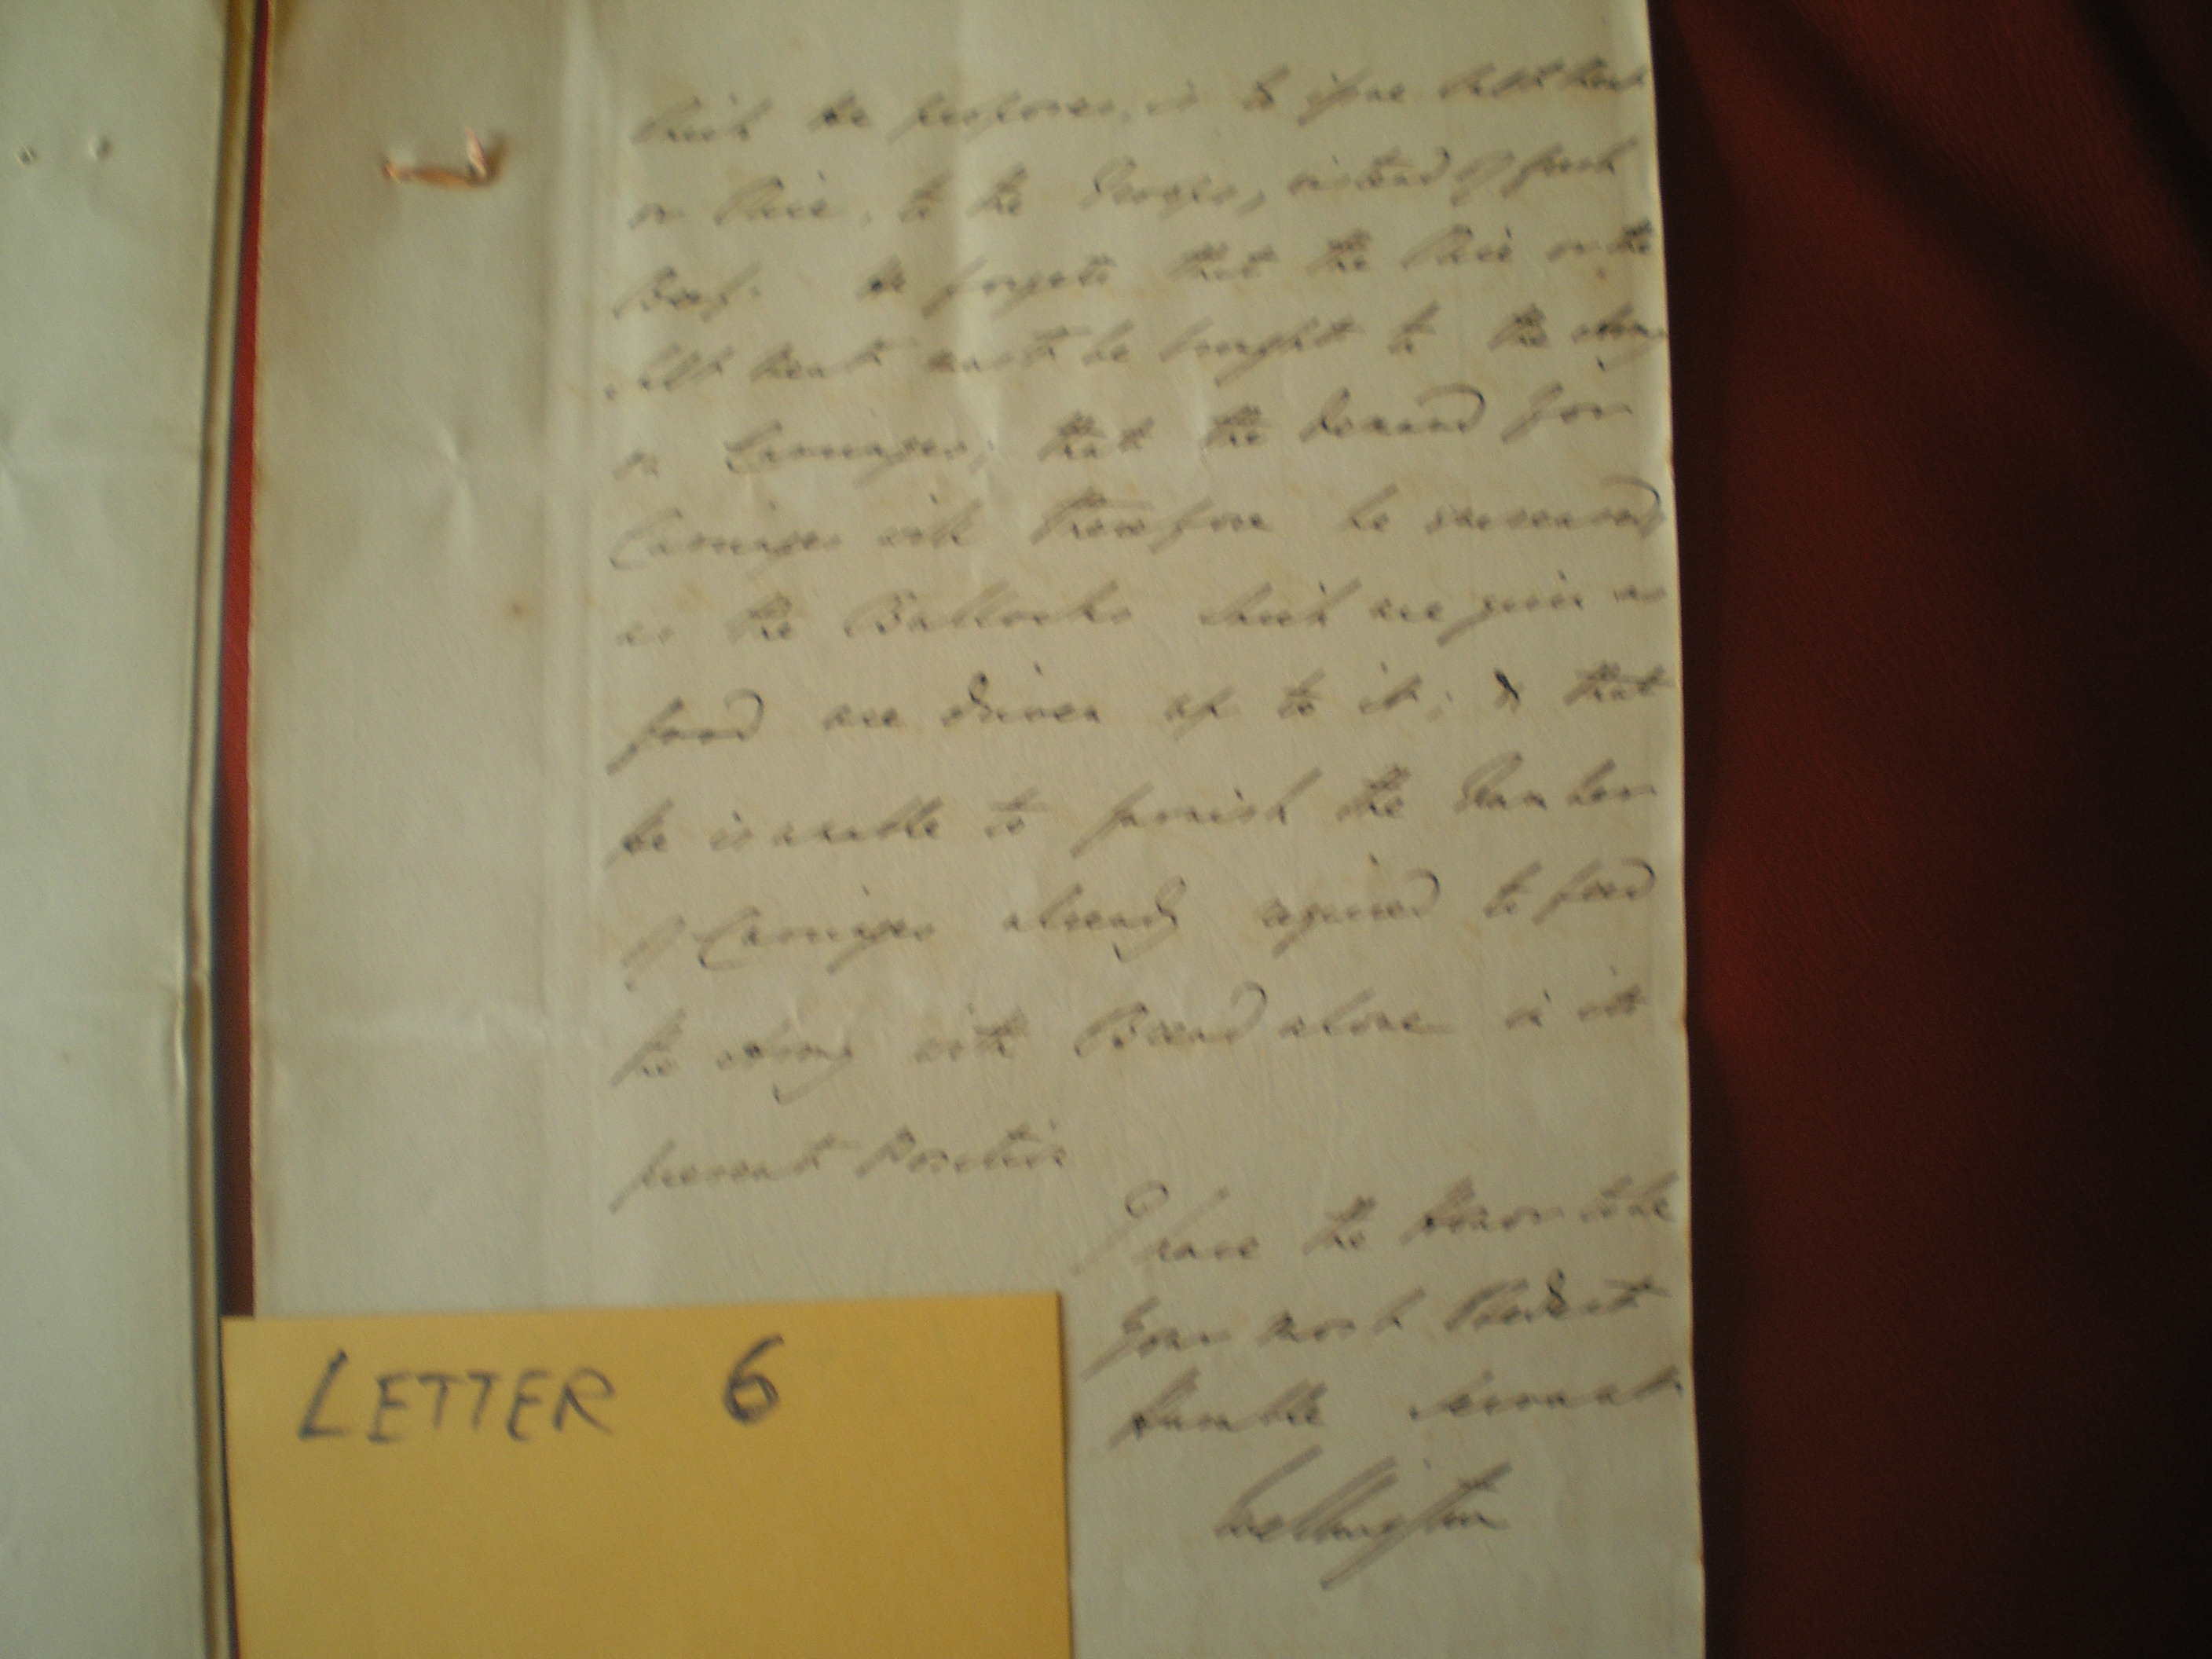 which he proposes, is to issue Salt Meat
or Rice, to the Troops, instead of fresh
Beef. He forgets that the Rice or the
Salt Meat must be brought to the Army
on Carriages; that the demand for
Carriages will therefore be increased
as the Bullocks which are given as
food are driven up to it; & that
he is unable to furnish the Number
of Carriages already required to feed
the Army with Bread alone in its
present Position
I have the Honor to be
Your most Obedient
Humble Servant
Wellington
LETTER 6